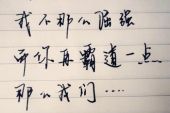 我不那么倔强
而你再霸道一点
那么我们····